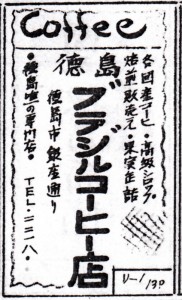 Coffee
各国産コーヒー・高級シロップ
焙煎販売元・果実缶詰
徳島
ブラジルコーヒー店
徳島市銀座通り
・徳島唯一の専門店・
TEL・二二一八・
U-1/130